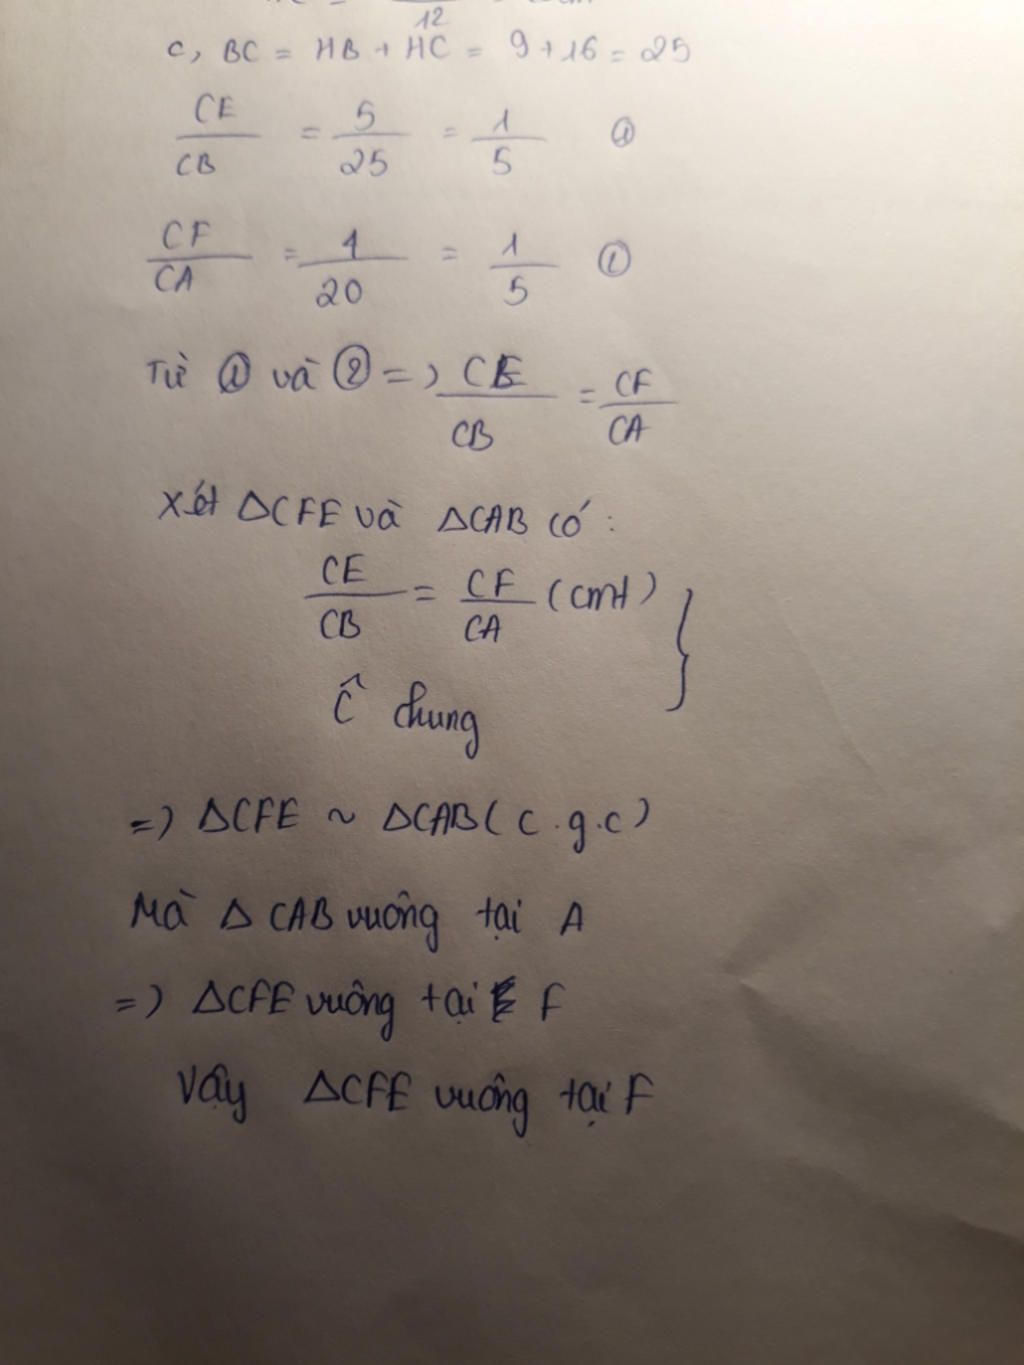 12
c, BC = HB + HC = 9 + 16 = 25
CE/CB = 5/25 = 1/5 ①
CF/CA = 4/20 = 1/5 ②
Từ ① và ② => CE/CB = CF/CA
Xét ΔCFE và ΔCAB có:
CE/CB = CF/CA (cmt) }
Ĉ chung
=> ΔCFE ~ ΔCAB (c.g.c)
Mà Δ CAB vuông tại A
=> ΔCFE vuông tại F
Vậy ΔCFE vuông tại F